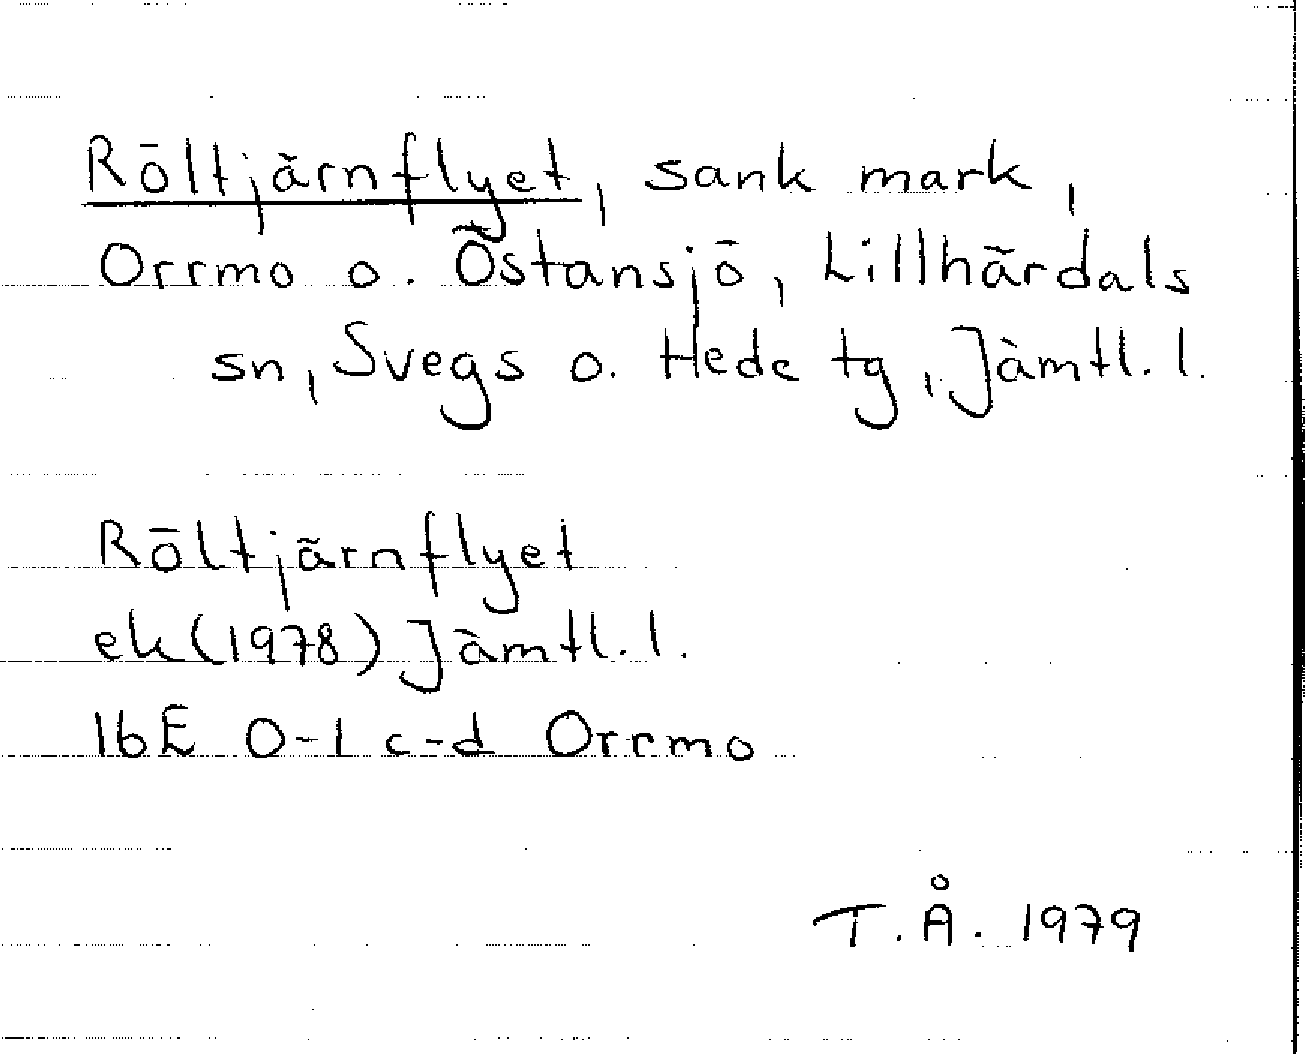 Röltjärnflyet, sank mark,
Orrmo o. Östansjö, Lillhärdals
sn, Svegs o. Hede tg, Jämtl. l.
Röltjärnflyet
ek (1978) Jämtl. l.
16E 0-1 c-d Orrmo
T. Å. 1979